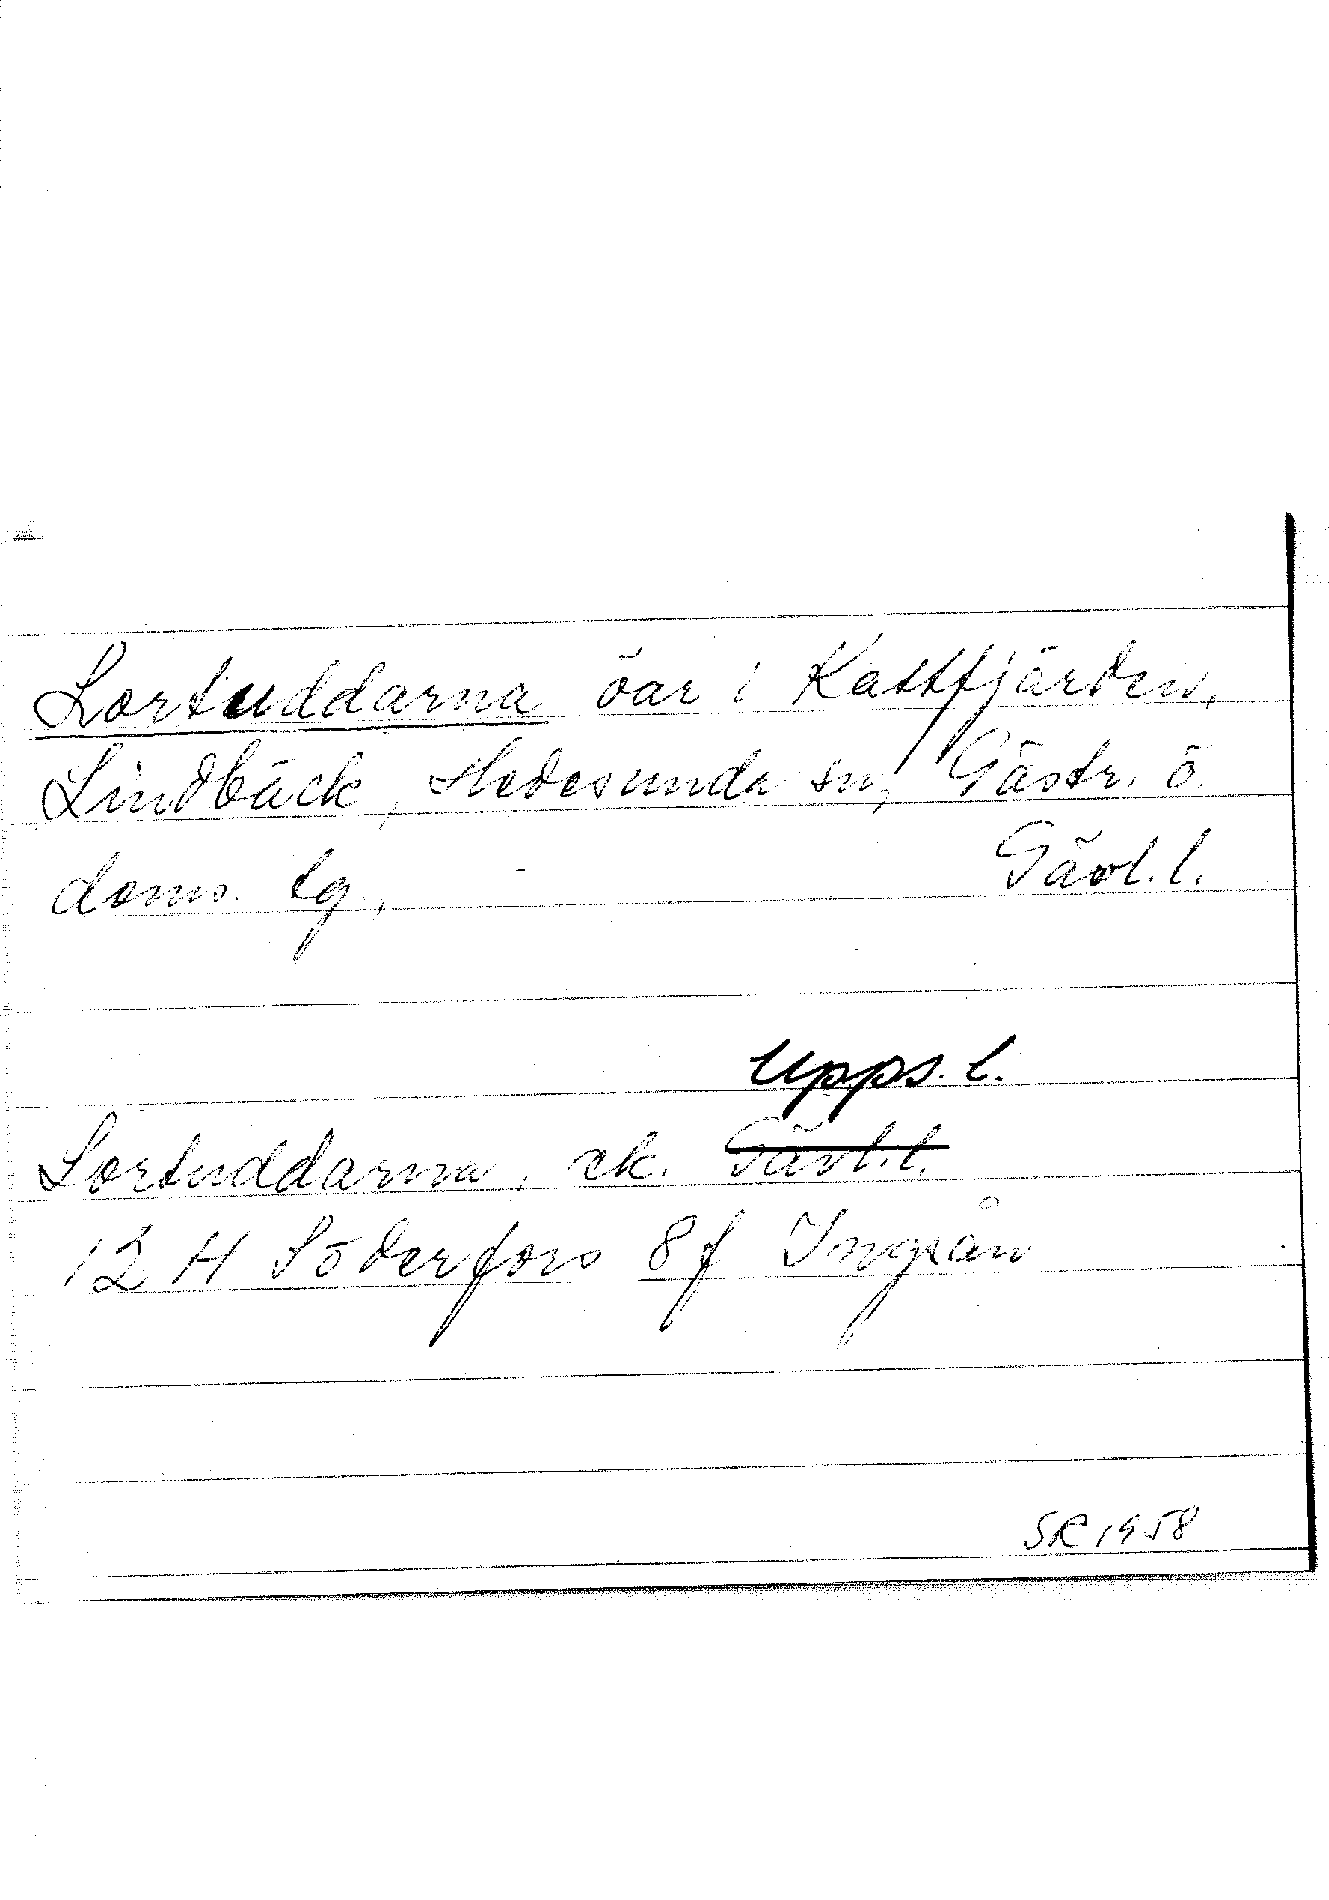 Lortuddarna öar i Kattfjärden,
Lindbäck, Hedesunda sn, Gästr. ö.
doms. tg, Gävl. l.
Upps. l.
Lortuddarna, ek. Gävl. l.
12 H Söderfors 8f Yngsån
SR 1958